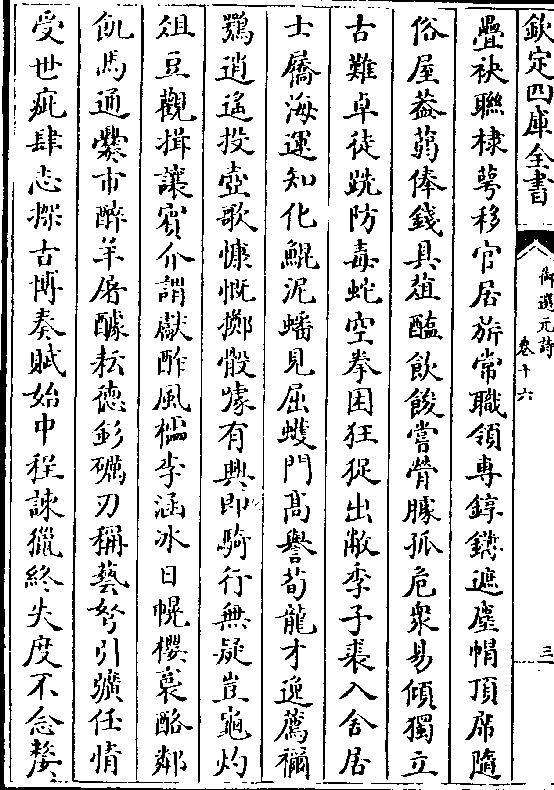 欽定四庫全書
御選元詩
卷十六
三
疊袂聯棣萼移官居旂常職領専錞鐫遮塵帽頂席隨
俗屋葢蒭俸錢具葅醢飲餕嘗膋臄孤危衆易傾獨立
古難卓徒跣防毒蛇空拳困狂促出敝季子裘入舍居
士屩海運知化鯤泥蟠見屈蠖門髙譽荀龍才逸薦禰
鶚逍遙投壺歌慷慨擲骰㩴有興即騎行無疑豈龜灼
俎豆觀揖讓賓介謂獻酢風檽李涵冰日幌櫻裛酪鄰
飢馬通爨市醉羊屠醵耘德釤礪刃稱藝弩引彍任情
受世疵肆志探古博奏賦始中程諫獵終失度不念嫠